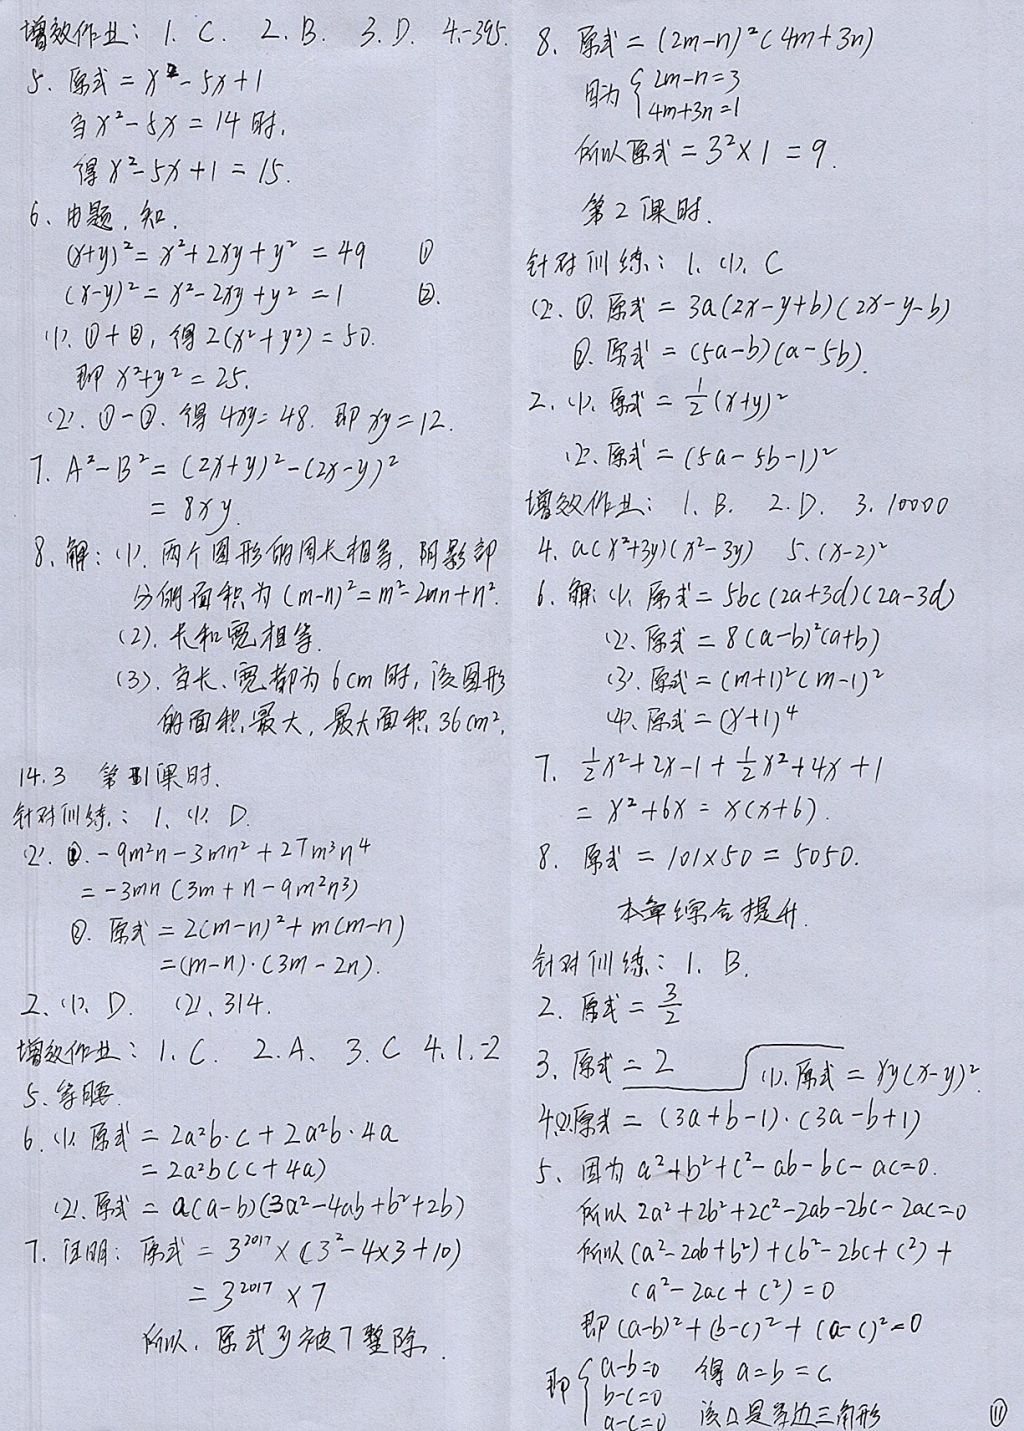 增效作业: 1. C. 2. B. 3. D. 4. -395.
5. 原式 = x² - 5x + 1
当 x² - 5x = 14 时,
得 x² - 5x + 1 = 15.
6. 由题, 知.
(x+y)² = x² + 2xy + y² = 49 ①
(x-y)² = x² - 2xy + y² = 1 ②.
(1). ① + ②, 得 2(x² + y²) = 50.
即 x² + y² = 25.
(2). ① - ②. 得 4xy = 48. 即 xy = 12.
7. A² - B² = (2x+y)² - (2x-y)²
= 8xy.
8. 解: (1). 两个图形的周长相等, 阴影部
分的面积为 (m-n)² = m² - 2mn + n².
(2). 长和宽相等.
(3). 当长、宽都为 6cm 时, 该图形
的面积最大, 最大面积 36cm².
14.3 第1课时.
针对训练: 1. (1). D.
(2). ①. -9m²n - 3mn² + 27m³n⁴
= -3mn (3m + n - 9m²n³)
②. 原式 = 2(m-n)² + m(m-n)
= (m-n)·(3m-2n).
2. (1). D. (2). 314.
增效作业: 1. C. 2. A. 3. C 4. 1. -2
5. 等腰.
6. (1). 原式 = 2a²b·c + 2a²b·4a
= 2a²b(c + 4a)
(2). 原式 = a(a-b)(3a² - 4ab + b² + 2b)
7. 证明: 原式 = 3²⁰¹⁷ × (3² - 4×3 + 10)
= 3²⁰¹⁷ × 7
所以, 原式可被 7 整除.
8. 原式 = (2m-n)²(4m+3n)
因为 { 2m-n=3
4m+3n=1
所以原式 = 3² × 1 = 9.
第2课时.
针对训练: 1. (1). C
(2). ①. 原式 = 3a(2x-y+b)(2x-y-b)
②. 原式 = (5a-b)(a-5b).
2. (1). 原式 = ½(x+y)²
(2). 原式 = (5a-5b-1)²
增效作业: 1. B. 2. D. 3. 10000
4. a(x²+3y)(x²-3y) 5. (x-2)²
6. 解: (1). 原式 = 5bc(2a+3d)(2a-3d)
(2). 原式 = 8(a-b)²(a+b)
(3). 原式 = (m+1)²(m-1)²
(4). 原式 = (x+1)⁴
7. ½x² + 2x - 1 + ½x² + 4x + 1
= x² + 6x = x(x+6).
8. 原式 = 101×50 = 5050.
本章综合提升.
针对训练: 1. B.
2. 原式 = 3/2
3. 原式 = 2 (1). 原式 = xy(x-y)².
4. (2). 原式 = (3a+b-1)·(3a-b+1)
5. 因为 a² + b² + c² - ab - bc - ac = 0.
所以 2a² + 2b² + 2c² - 2ab - 2bc - 2ac = 0
所以 (a² - 2ab + b²) + (b² - 2bc + c²) +
(a² - 2ac + c²) = 0
即 (a-b)² + (b-c)² + (a-c)² = 0
即 { a-b=0 得 a=b=c
b-c=0
a-c=0 该△是等边三角形
⑪